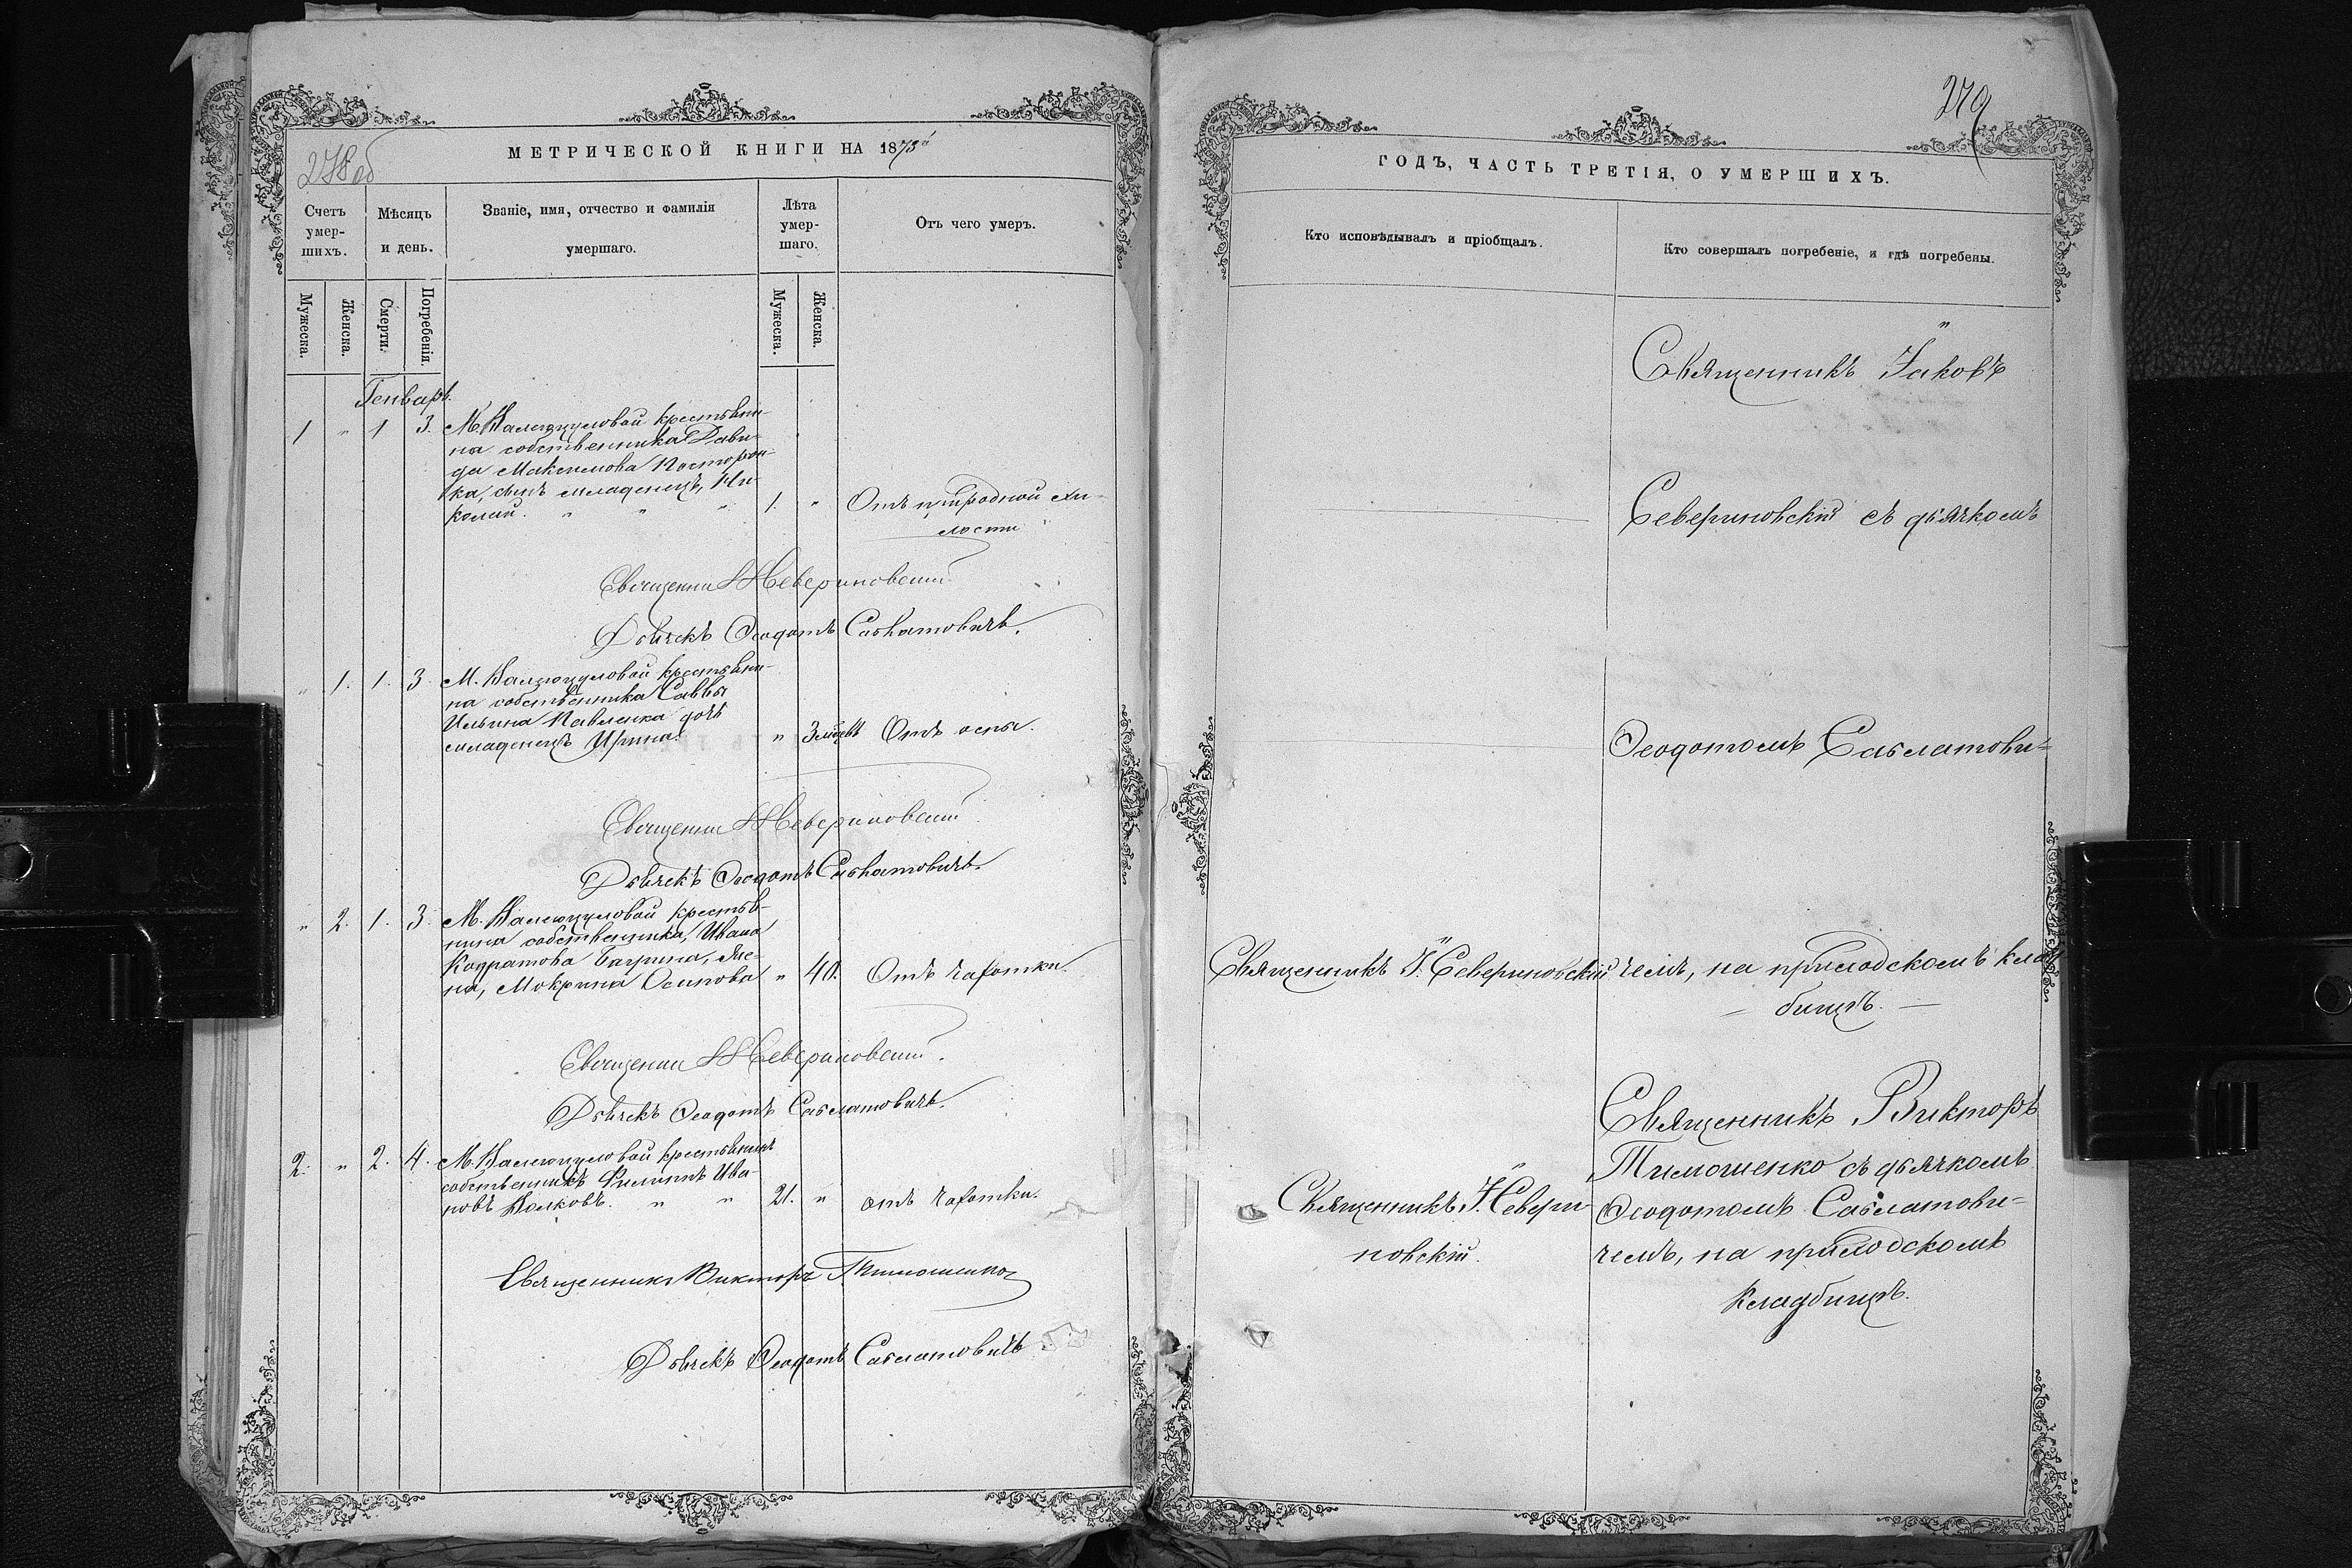 278об
МЕТРИЧЕСКОЙ КНИГИ НА 1873й
Счетъ умер-шихъ.
Мѣсяцъ и день.
Званіе, имя, отчество и фамилія умершаго.
Лѣта умер-шаго.
Отъ чего умеръ.
Мужеска.
Женска.
Смерти.
Погребенія.
Мужеска.
Женска.
Генварь.
1 " 1 3. М. крестьяни-
на собственника Дави-
да Максимова Насторон-
ка, сынъ младенецъ, Ни-
колай. " " " 1. " Отъ природной хи-
лости
Священни Севериновскій
Дьячекъ Ѳеодотъ Савлатовичъ.
" 1. 1. 3. М. крестьяни-
на собственника Саввы
Ильина Павленка дочь
младенецъ Ирина. " 3 мѣсяц Отъ оспы.
Священни Севериновскій
Дьячекъ Ѳеодотъ Савлатовичъ.
" 2. 1. 3. М. крестья-
нина собственника, Ивана
Кодратова Багрина, же-
на, Мокрина Осипова " 40. Отъ чахотки.
Священни Севериновскій.
Дьячекъ Ѳеодотъ Савлатовичъ.
2. " 2. 4. М. крестьянинъ
собственникъ Филиппъ Ива-
новъ Волковъ. " " 21. " отъ чахотки.
Священникъ Викторъ Тимошенко
Дьячекъ Ѳеодотъ Савлатовичъ
279
ГОДЪ, ЧАСТЬ ТРЕТІЯ, О УМЕРШИХЪ.
Кто исповѣдывалъ и пріобщалъ.
Кто совершалъ погребеніе, и гдѣ погребены.
Священникъ Іаковъ
Севериновскій съ дьячкомъ
Ѳеодотомъ Савлатови-
Священникъ І. Севериновскій чемъ, на приходскомъ клад
бищѣ.
Священникъ Викторъ
Тимошенко съ дьячкомъ
Священникъ І. Севери- Ѳеодотомъ Савлатови-
новскій. чемъ, на приходскомъ
кладбищѣ.